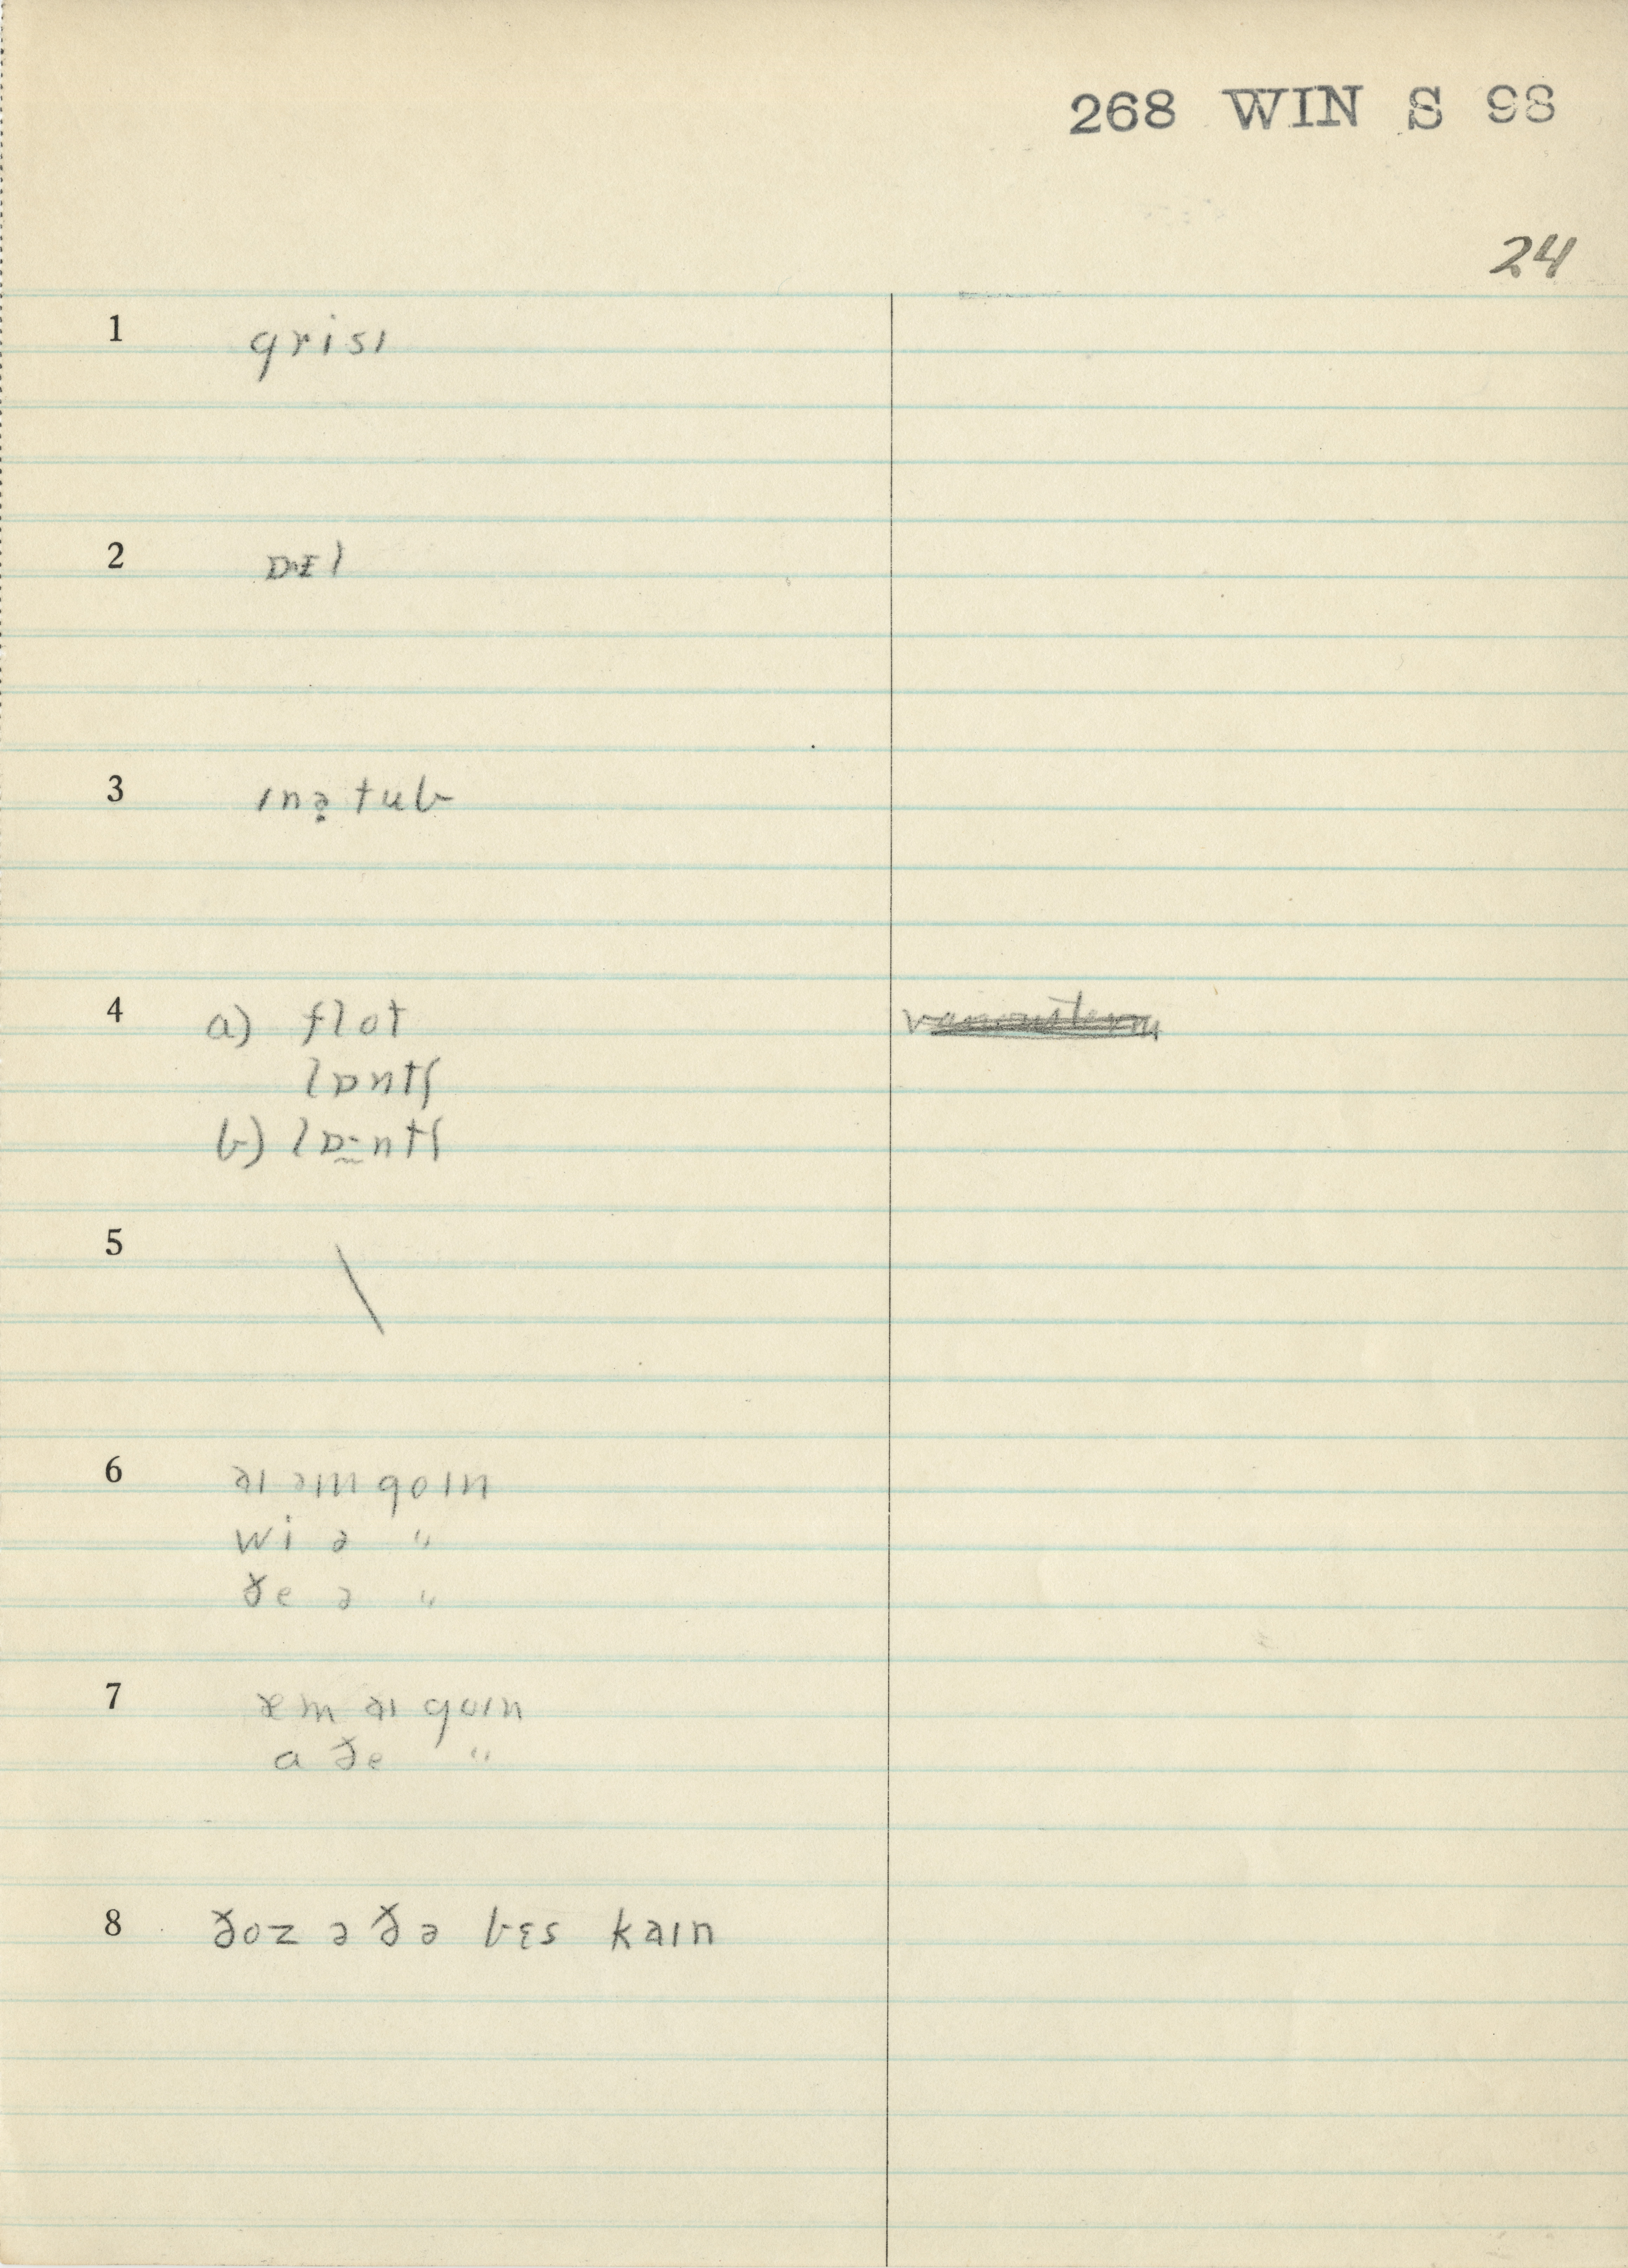 268 WIN S 98
24
1 grisɪ
2 ɒ·ɪl
3 ɪnə̣ tub
4 a) flot
lɒntʃ
b) lɒ·ntʃ
5 \
6 əɪ əm goɪn
wi ə "
ðe ə "
7 æm əɪ goɪn
a ðe "
8 ðoz ə ðə bɛs kaɪn